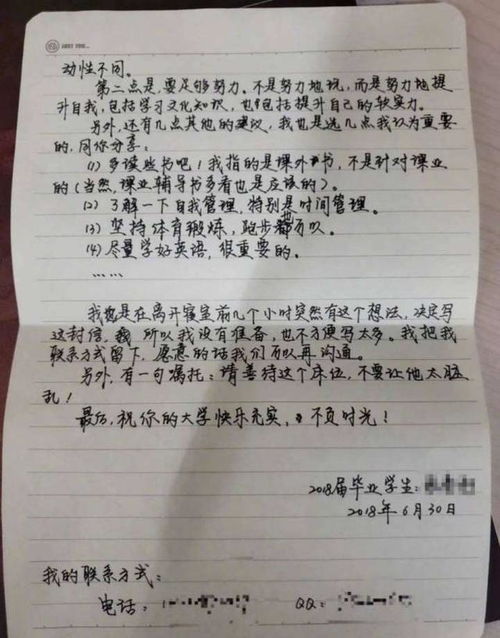 动性不同。
第二点是,要足够努力。不是努力地玩,而是努力地提
升自我,包括学习文化知识,也包括提升自己的软实力。
另外,还有几点其他的建议,我也是选几点我认为重要
的,同你分享:
(1) 多读些书吧!我指的是课外书,不是针对课业
的(当然,课业辅导书多看也是应该的)。
(2) 了解一下自我管理,特别是时间管理。
(3) 坚持体育锻炼,跑步也可以。
(4) 尽量学好英语,很重要的。
……
我也是在离开寝室前几个小时突然有这个想法,决定写
这封信,所以我没有准备,也不方便写太多。我把我
联系方式留下,愿意的话我们可以再沟通。
另外,有一句嘱托:请善待这个床位,不要让他太脏
乱!
最后,祝你的大学快乐充实,不负时光!
2018届毕业学生:
2018年6月30日
我的联系方式:
电话: QQ: